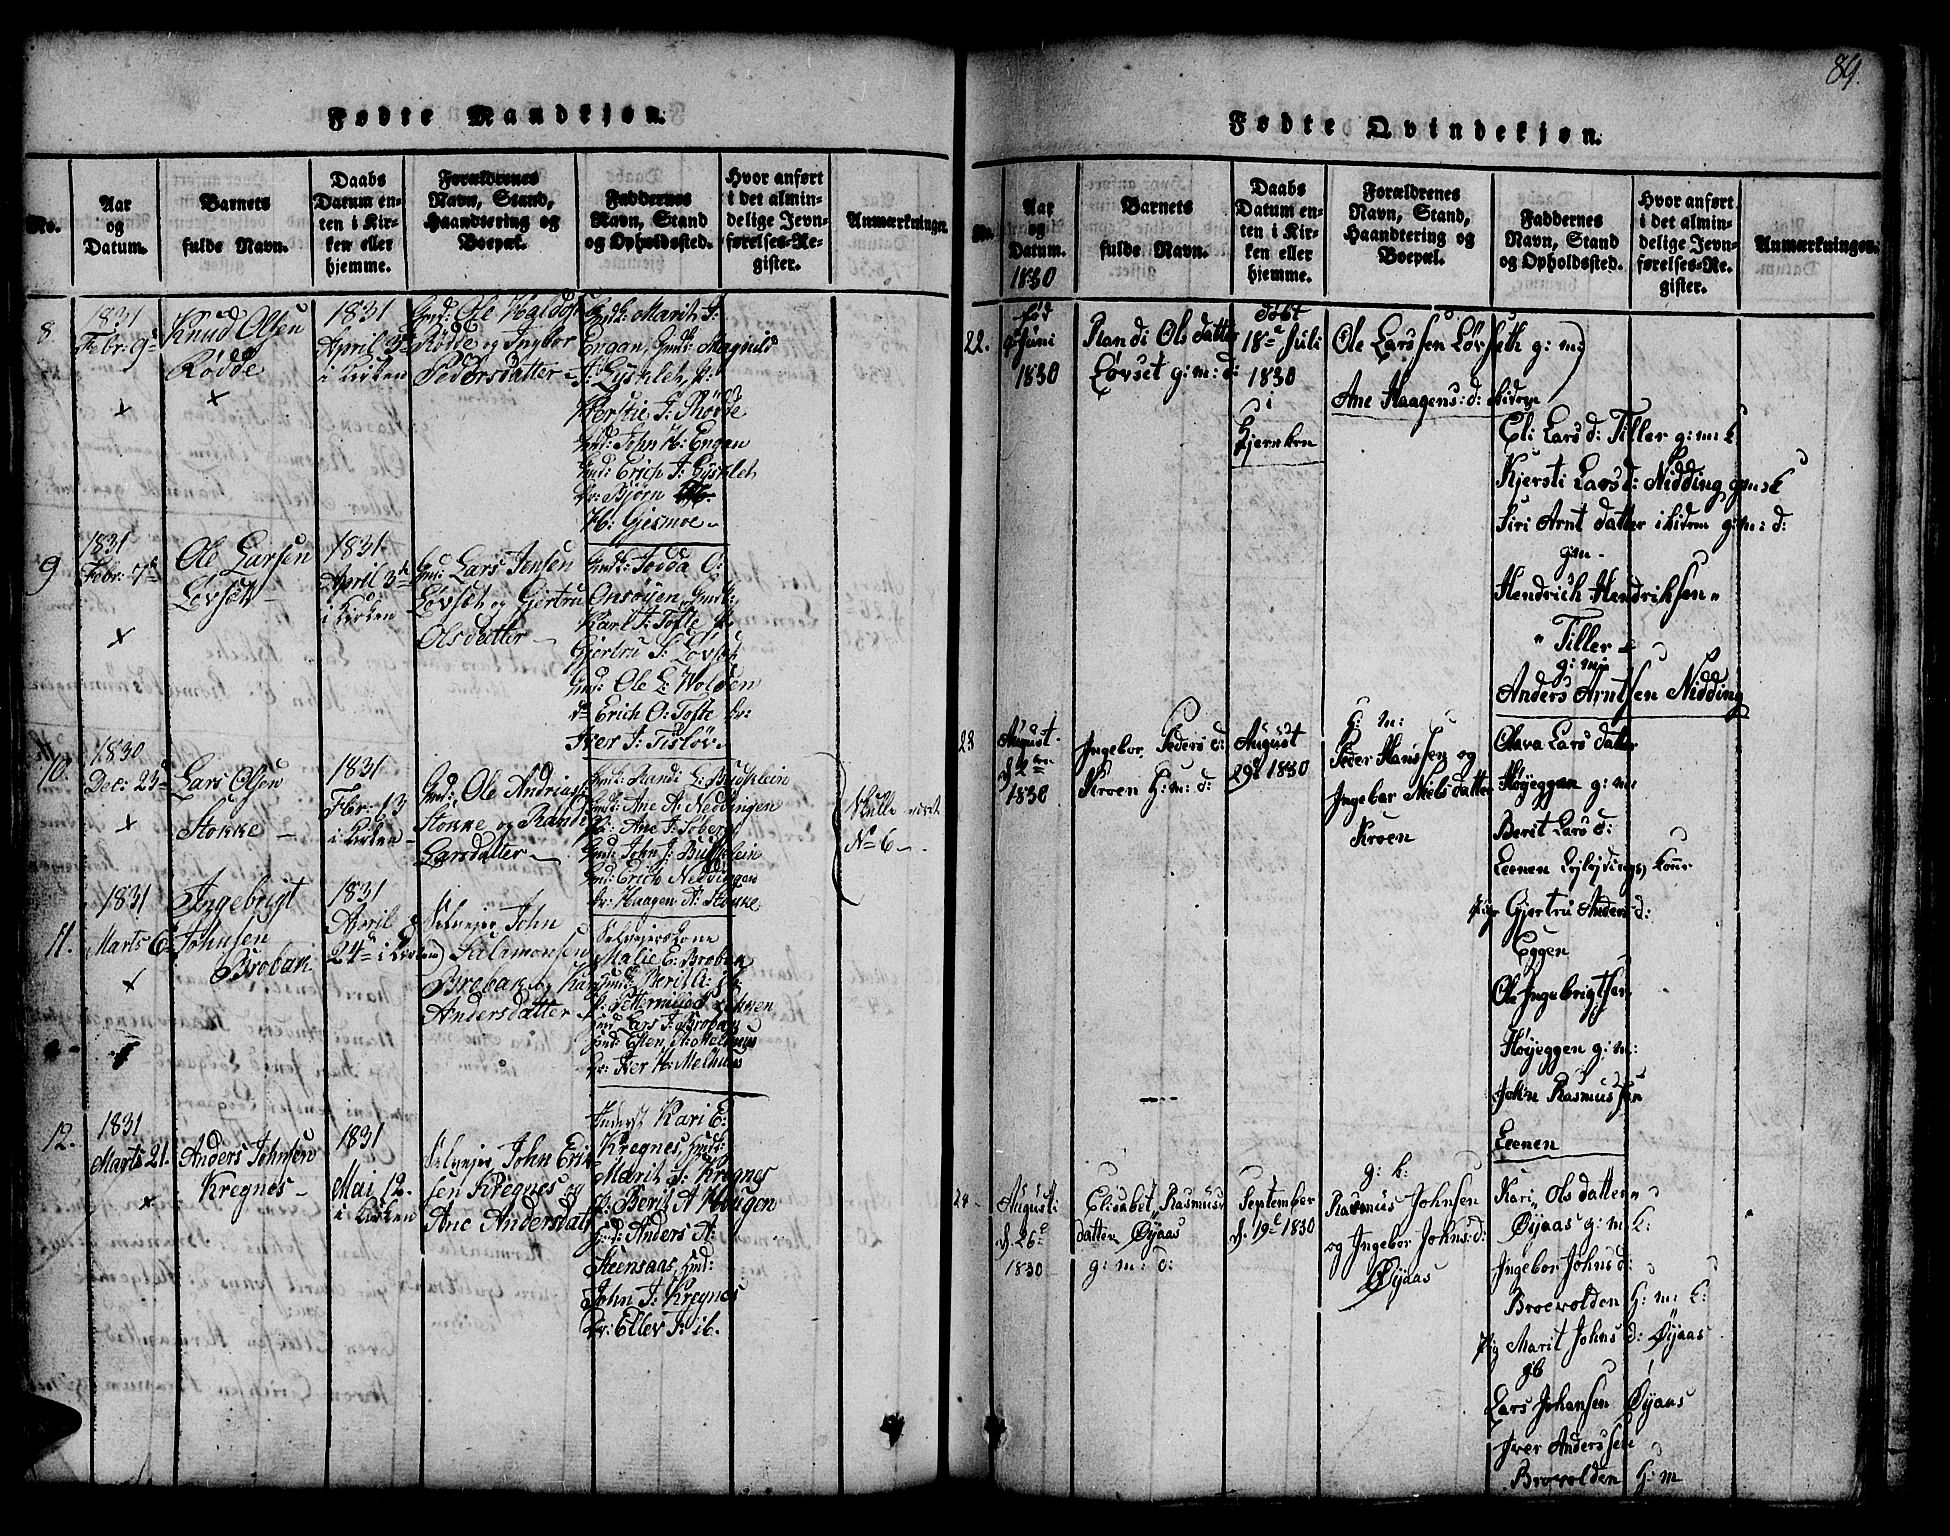 89.
Fødte Mandkjøn.
No.
Aar
og
Datum.
Barnets
fulde Navn.
Daabs
Datum en-
ten i Kir-
ken eller
hjemme.
Forældrenes
Navn, Stand,
Haandtering og
Boepæl.
Faddernes
Navn, Stand
og Opholdssted.
Hvor anført
i det almin-
delige Jevn-
førelses-Re-
gister.
Anmærkninger.
8.
1831
Febr: 9d
Knud Olsen
Rødde
1831
April
i Kirken
Gmd: Ole Haldos
Rødde og Ingbor
Pedersdatter
Gmdk: Marit J:
Engan, Gmdk: Magnild
J: Gyllet, p:
Kerstie J: Thørde
Gmd: John H: Engan
Gmd: Erich J:
Dr: Bjørn
H: Gjesmoe
9
1831
Febr: 7d
Ole Larsen
Løvset
1831
April 3d
i Kirken
Gmd: Lars Jensen
Løvset og Gjertru
Olsdatter
Gmdk: Jodda O:
Onsøyen, Gmdk:
Karl J: Tofte p:
Gjertru J: Løvset
Gmd: Ole L: Wolden
Erich O: Tofte Dr:
Iver J:
10.
1830
Dec: 23d
Lars Olsen
Stokke
1831
Febr: 13
i Kirken
Gmd: Ole Andrias
Stokke og Randi
Larsdatter
Gmdk: Randi L:
Gmdk: Ane A: Neddingen
Ane J: Søberg
Gmd: John J:
Gmd: Erich Neddingen
Dr: Haagen A: Stokke
Skulle været
No 6
11.
1831
Marts 6
Ingebrigt
Johnsen
Brobak
1831
April
24d i Kirken
Selveier John
Salomonsen
Brobak og Kar
Andersdatter
Selveiers Kone
Malie E: Brobak
Gmdk: Berit A:
Lars J: Brobak
Gmd: Esten A: Melhuus
Dr: Iver H: Melhuus
12.
1831
Marts 21.
Anders Johnsen
Kregnes
1831
Mai 12.
i Kirken
Selveier John Erik
sen Kregnes og
Ane Andersdatt
Kari E:
Kregnes, Gmdk:
Marit J: Kregnes
p: Berit A Hougen
Gmd: Anders A:
Steensaas, Gmd:
John J: Kregnes
Dr: Ellev J: ib.
Fødte Qvindekjøn.
No.
Aar
og
Datum.
1830
Barnets
fulde Navn.
Daabs
Datum en-
ten i Kir-
ken eller
hjemme.
Forældrenes
Navn, Stand,
Haandtering og
Boepæl.
Faddernes
Navn, Stand
og Opholdssted.
Hvor anført
i det almin-
delige Jevn-
førelses-Re-
gister.
Anmærkninger.
22.
fød
Juni
1830
Randi Ols datter
Løvset g: m: d:
Døbt
18de Juli
1830
i
Kjerrken
Ole Larssen Løvseth g: m:
Ane Haagens: d:
Eli Lars d: Tiller g: m: k
Kjersti Lars d: Nidding gm: k
Siri Arnt datter g: m: d:
gm.
Hendrich Hendriksen
Tiller
g: m:
Anders Arntsen Nidding
23
August
d. 2den
1830
Ingebor Peders d:
Kroen H: m: d:
August
29d 1830
H: m:
Peder Hanssen og
Ingebor Nels datter
Kroen
Olava Lars datter
Høyeggen g: m:
Berit Lars d:
Leenen
Pige Gjertru Anders d:
Eggen
Ole Ingebrigtsen
Høyeggen g: m:
John Rasmussen
Leenen
24
August
d. 26d
1830
Elisabet Rasmus
datter Øyaas
g: m: d:
September
d. 19d 1830
g: k:
Rasmus Johnsen
og Ingebor Johns: d:
Øyaas
Kari Ols datter
Øyaas g: m: k:
Ingebor Johns d:
Broevolden H: m: k:
Pig Marit Johns d: Øyaas
gb
Lars Johansen Øyaas
Iver Anderssen
Broevolden H: m